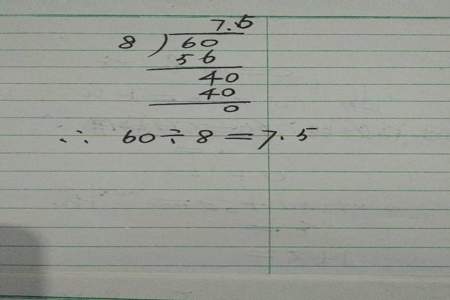 7.5
8 ) 60
56
40
40
0
∴ 60 ÷ 8 = 7.5